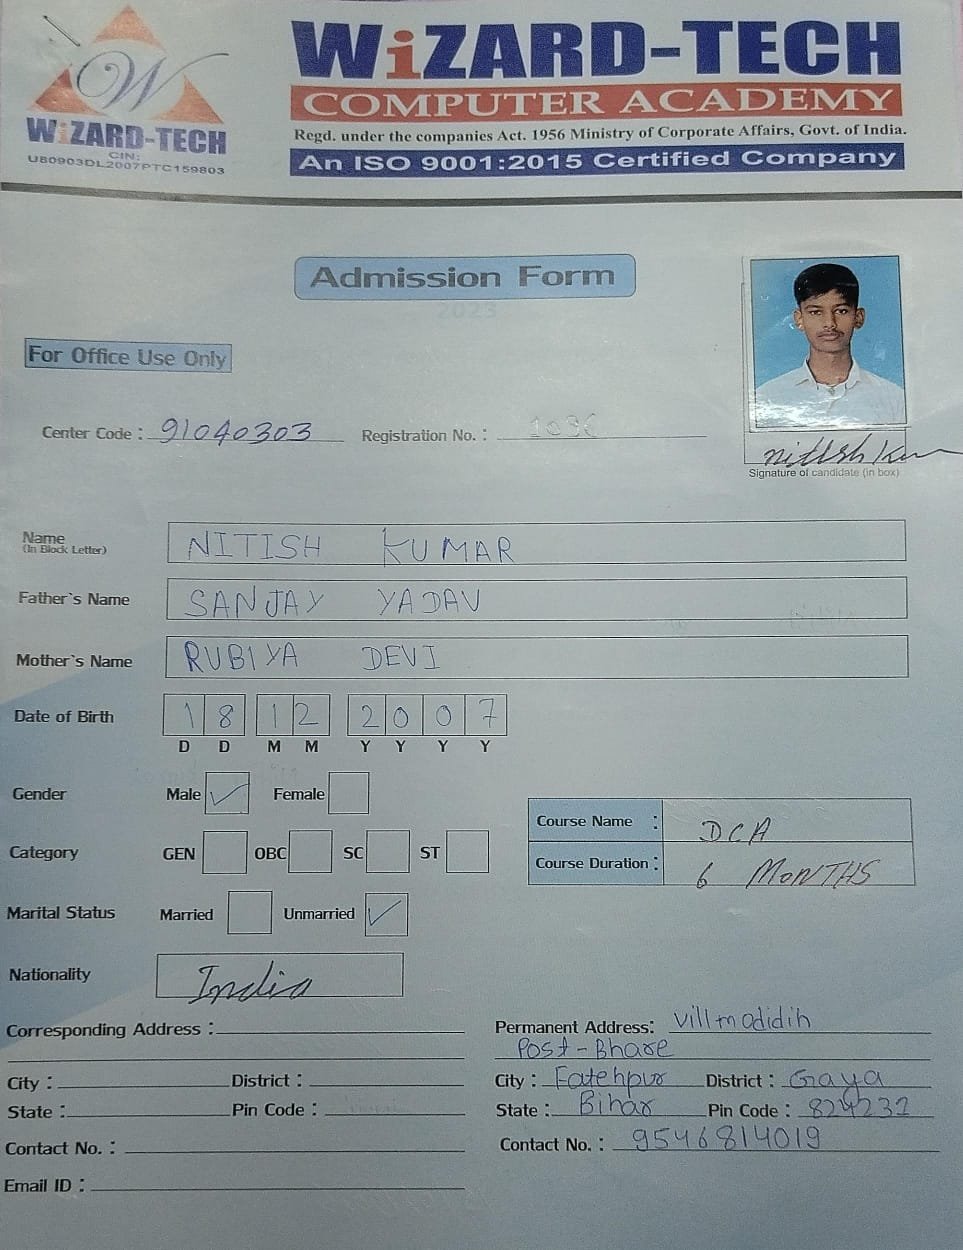 WiZARD-TECH
COMPUTER ACADEMY
Regd. under the companies Act. 1956 Ministry of Corporate Affairs, Govt. of India.
An ISO 9001:2015 Certified Company
W
WiZARD-TECH
CIN:
U80903DL2007PTC159803
Admission Form
2023
For Office Use Only
Center Code : 91040303 Registration No. : 1036
nitish Kum
Signature of candidate (in box)
Name NITISH KUMAR
(In Block Letter)
Father`s Name SANJAY YADAV
Mother`s Name RUBIYA DEVI
Date of Birth 18 12 2007
D D M M Y Y Y Y
Gender Male ✓ Female
Course Name : DCA
Category GEN OBC SC ST
Course Duration : 6 MONTHS
Marital Status Married Unmarried ✓
Nationality India
Corresponding Address : Permanent Address: Vill madidih
Post - Bhare
City : District : City : Fatehpur District : Gaya
State : Pin Code : State : Bihar Pin Code : 824232
Contact No. : Contact No. : 9546814019
Email ID :